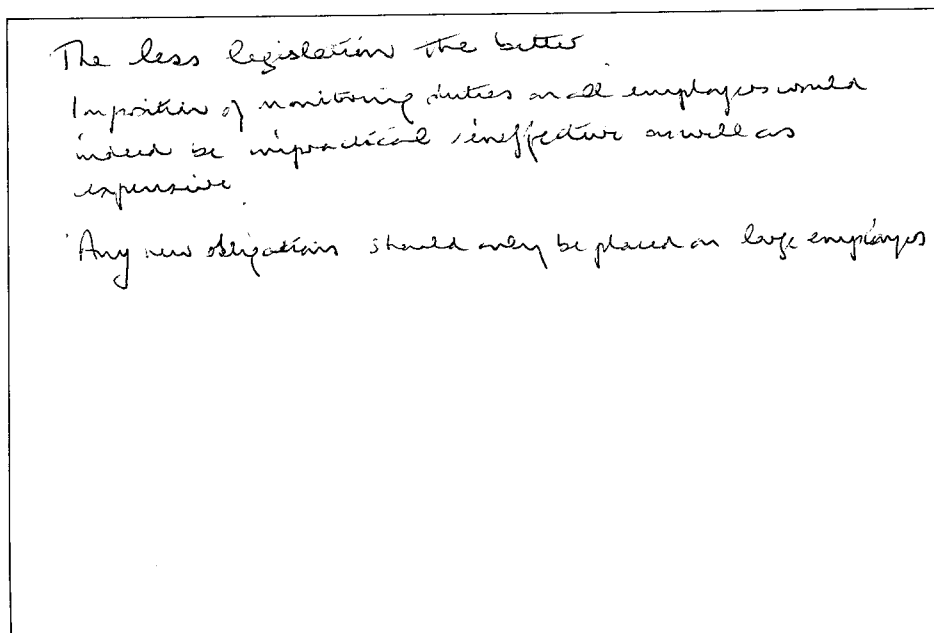 The less legislation the better
Imposition of monitoring duties on all employers would
indeed be impractical, ineffective as well as
expensive.
Any new obligations should only be placed on large employers